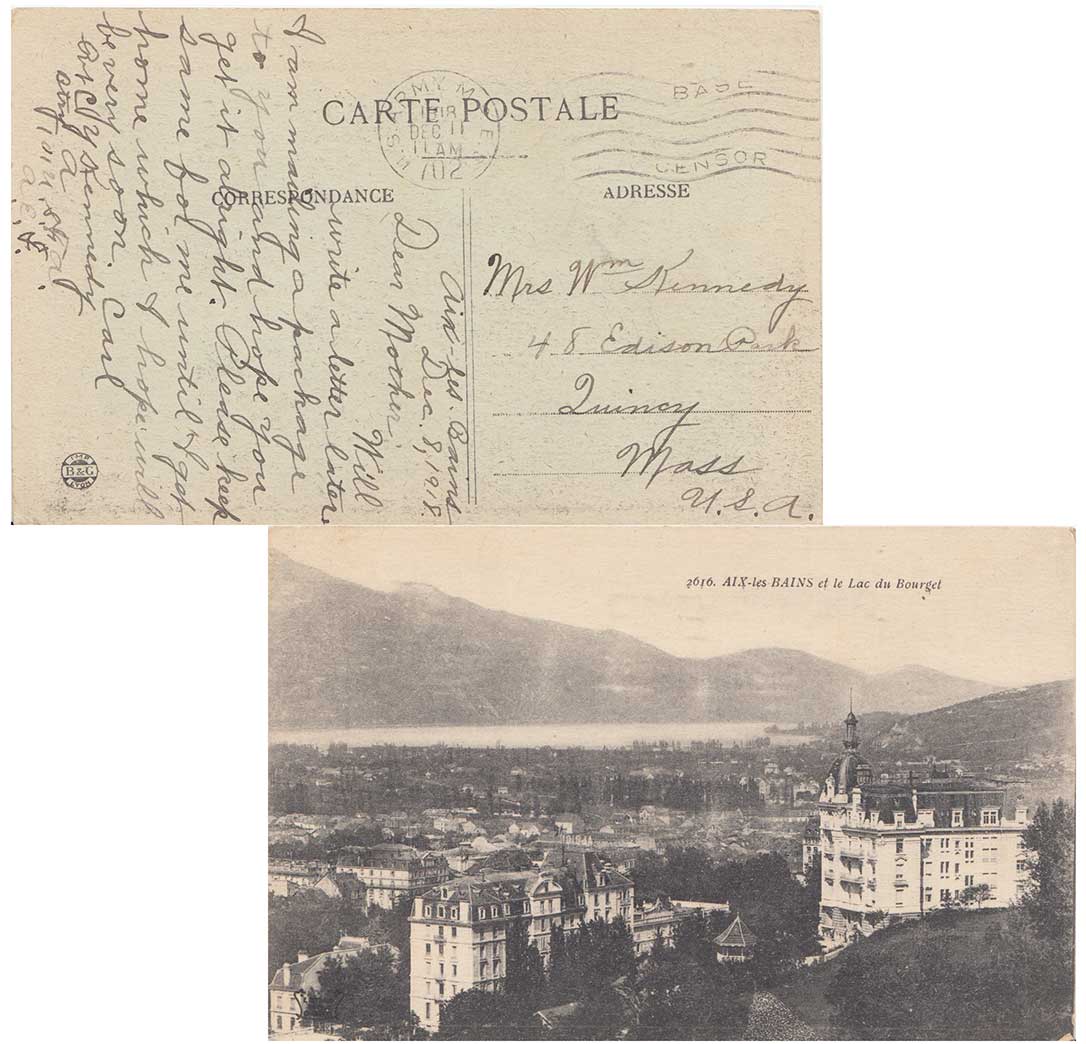 CARTE POSTALE
CORRESPONDANCE
ADRESSE
ARMY M
1918
DEC 11
11 AM
702
BASE
CENSOR
Aix-les-Bains
Dec. 8, 1918.
Dear Moother: Will
write a letter later.
I am mailing a package
to you and hope you
get it alright. Please keep
same for me until I get
home which I hope will
be very soon. Carl
Kennedy
a. E. F.
Mrs Wm Kennedy
48 Edison Park
Quincy
Mass
U.S.A.
IMP.
B&G
LYON
2616. AIX-les-BAINS et le Lac du Bourget